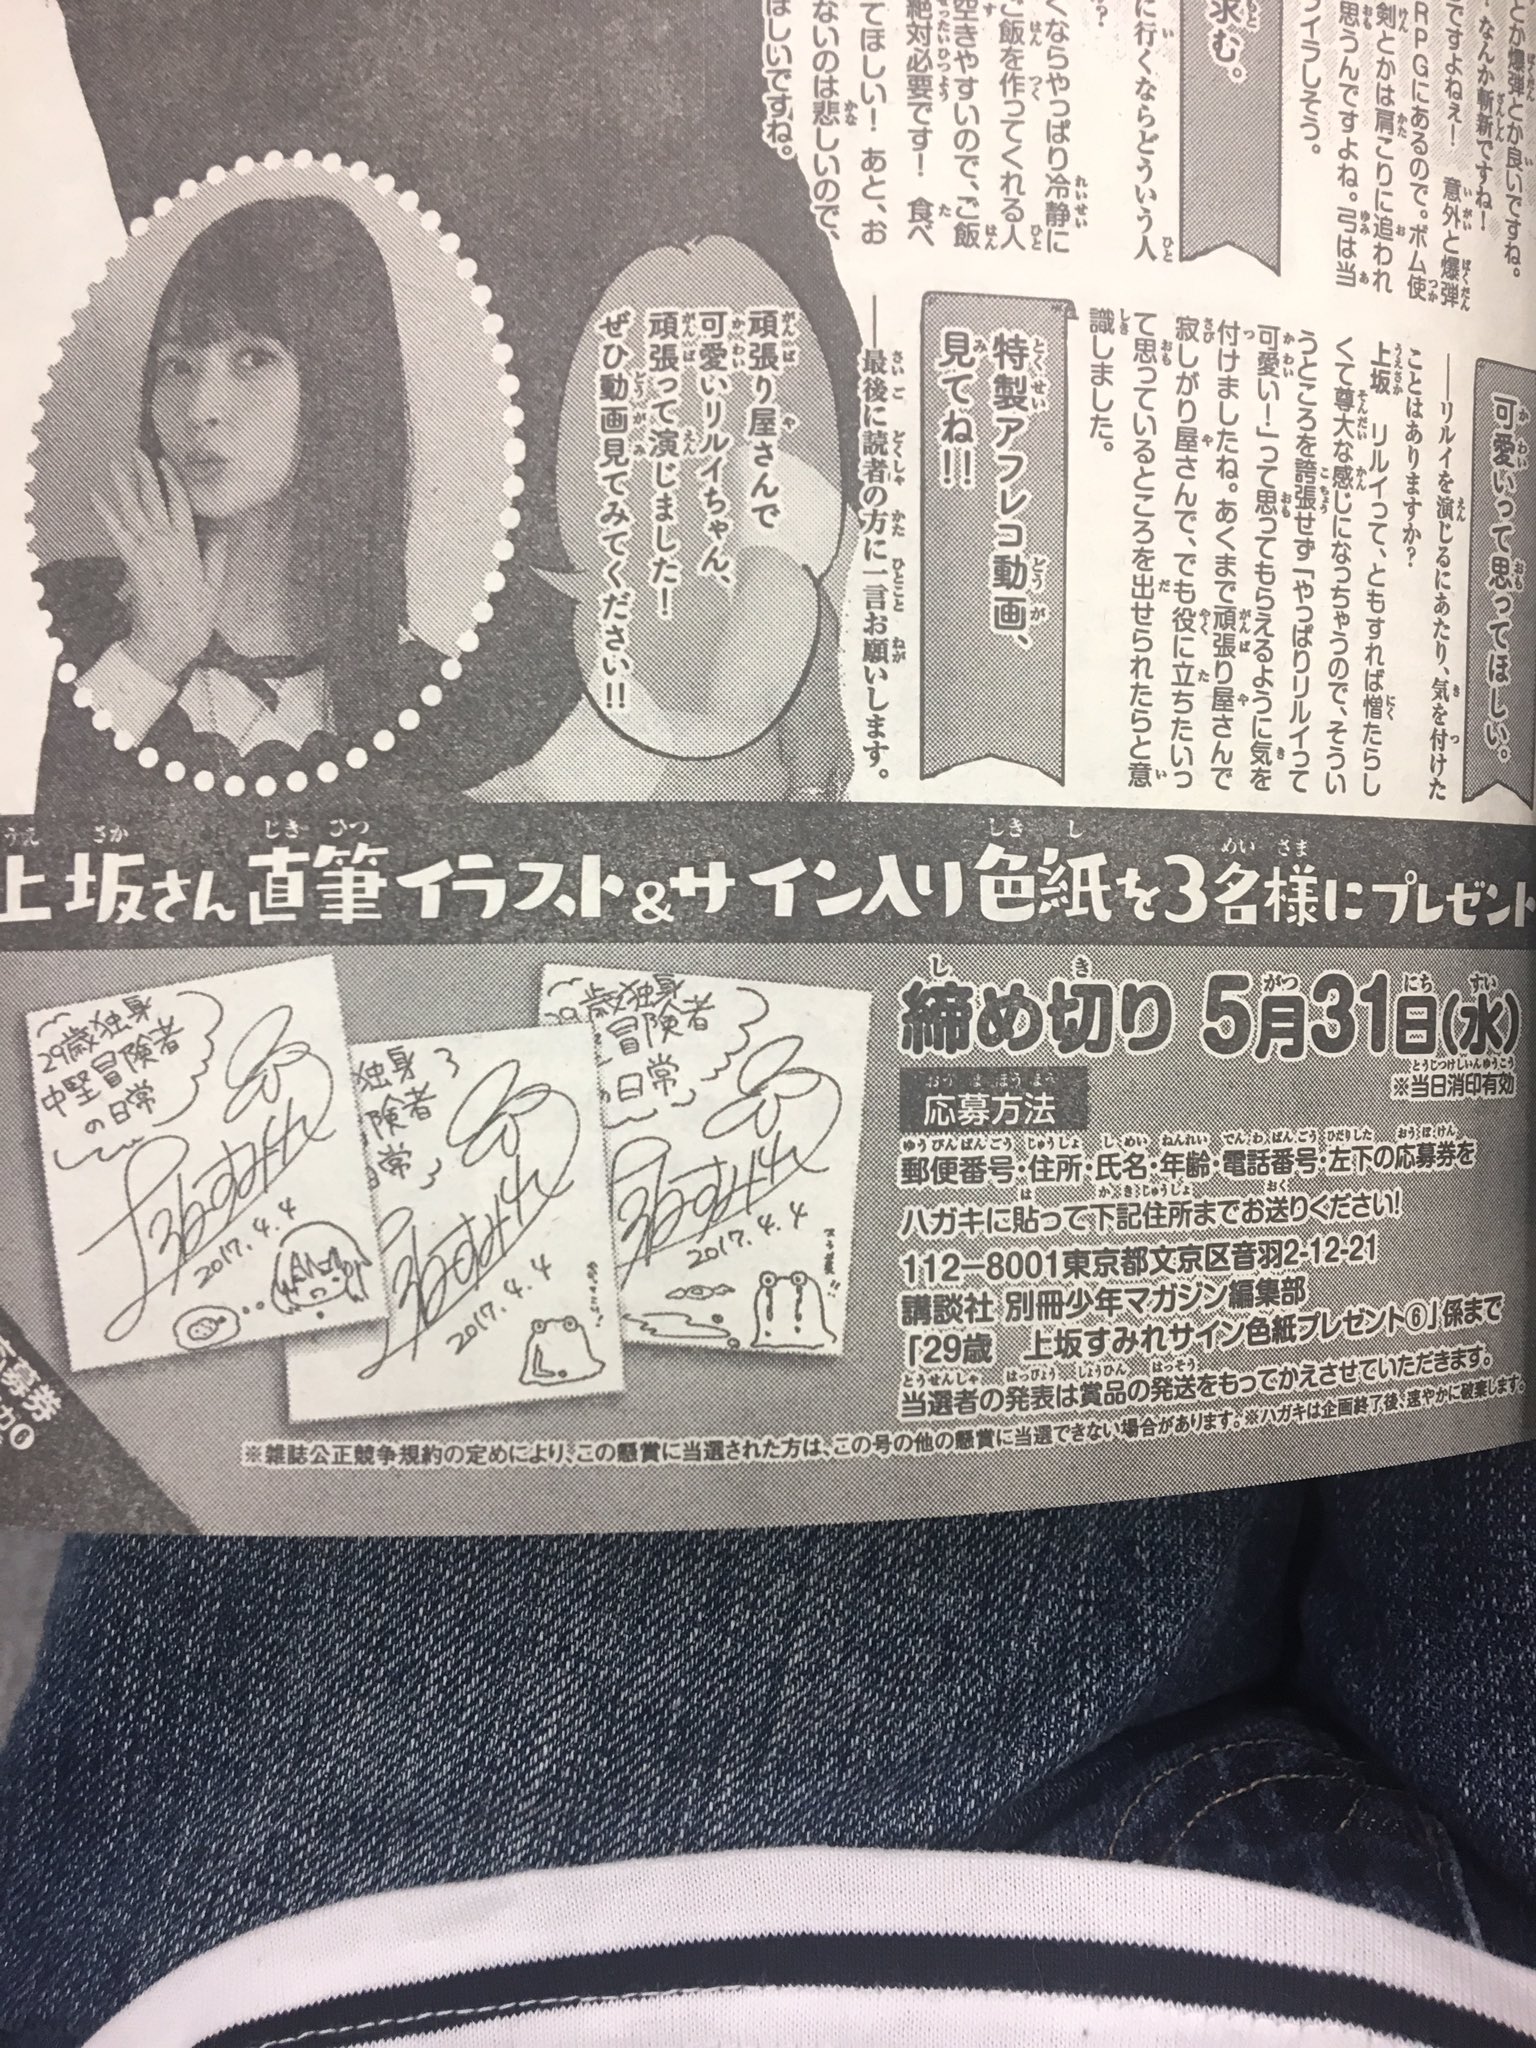 とか爆弾とか良いですね。
なんか斬新ですね！
ですよねぇ！　意外と爆弾
RPGにあるので。ボム使
剣とかは肩こりに追われ
思うんですよね。弓は当
イラしそう。
求む。
に行くならどういう人
？
くならやっぱり冷静に
ご飯を作ってくれる人
空きやすいので、ご飯
絶対必要です！　食べ
てほしい！　あと、お
ないのは悲しいので、
ほしいですね。
可愛いって思ってほしい。
――リルイを演じるにあたり、気を付けた
ことはありますか？
上坂　リルイって、ともすれば憎たらし
くて尊大な感じになっちゃうので、そうい
うところを誇張せず「やっぱりリルイって
可愛い！」って思ってもらえるように気を
付けましたね。あくまで頑張り屋さんで
寂しがり屋さんで、でも役に立ちたいっ
て思っているところを出せられたらと意
識しました。
特製アフレコ動画、
見てね!!
――最後に読者の方に一言お願いします。
頑張り屋さんで
可愛いリルイちゃん、
頑張って演じました！
ぜひ動画見てみてください!!
上坂さん直筆イラスト&サイン入り色紙を3名様にプレゼント
29歳独身
中堅冒険者
の日常
2017.4.4
独身
険者
常
2017.4.4
29歳独身
冒険者
の日常
2017.4.4
締め切り 5月31日(水)
※当日消印有効
応募方法
郵便番号・住所・氏名・年齢・電話番号・左下の応募券を
ハガキに貼って下記住所までお送りください!
112-8001東京都文京区音羽2-12-21
講談社 別冊少年マガジン編集部
「29歳　上坂すみれサイン色紙プレゼント⑥」係まで
当選者の発表は賞品の発送をもってかえさせていただきます。
※雑誌公正競争規約の定めにより、この懸賞に当選された方は、この号の他の懸賞に当選できない場合があります。※ハガキは企画終了後、速やかに破棄します。
応募券